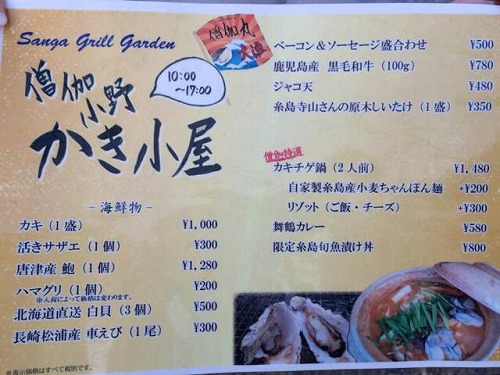 Sanga Grill Garden
僧伽丸
僧伽
小野
かき小屋
10:00
～17:00
－海鮮物－
カキ（1盛） ¥1,000
活きサザエ（1個） ¥300
唐津産 鮑（1個） ¥1,280
ハマグリ（1個） ¥200
※入荷によって価格は変わります。
北海道直送 白貝（3個） ¥500
長崎松浦産 車えび（1尾） ¥300
※表示価格はすべて税別です。
ベーコン＆ソーセージ盛合わせ ¥500
鹿児島産 黒毛和牛（100g） ¥780
ジャコ天 ¥480
糸島寺山さんの原木しいたけ（1盛） ¥350
僧伽特選
カキチゲ鍋（2人前） ¥1,480
自家製糸島産小麦ちゃんぽん麺 +¥200
リゾット（ご飯・チーズ） +¥300
舞鶴カレー ¥580
限定糸島旬魚漬け丼 ¥800